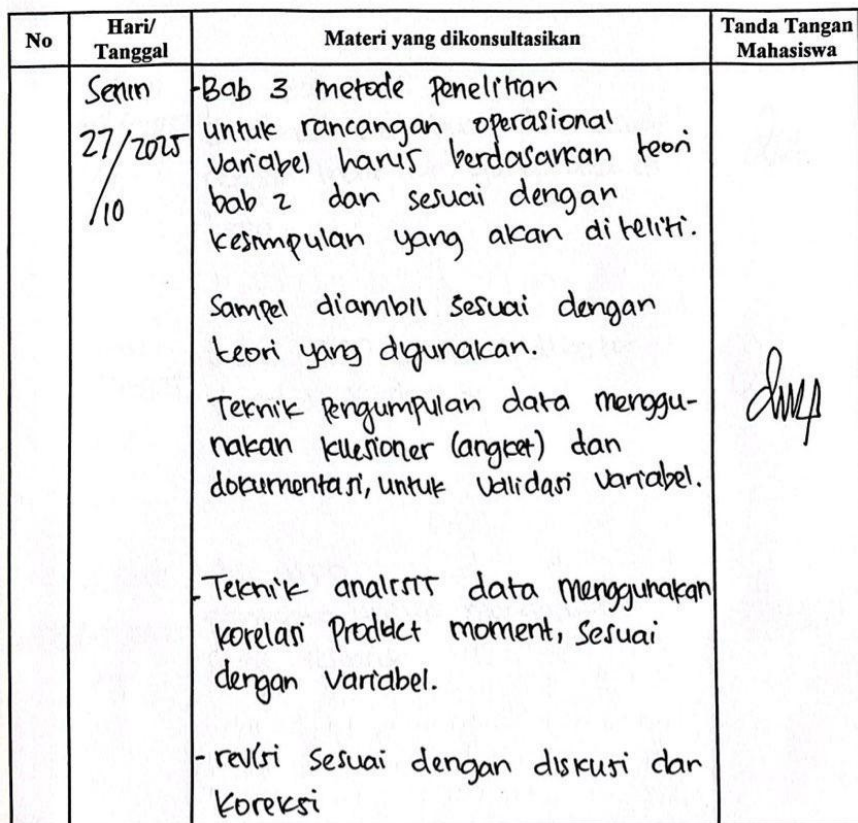 No
Hari/
Tanggal
Materi yang dikonsultasikan
Tanda Tangan
Mahasiswa
Senin
27/2025
/10
-Bab 3 metode penelitian
untuk rancangan operasional
variabel harus berdasarkan teori
bab 2 dan sesuai dengan
kesimpulan yang akan diteliti.
Sampel diambil sesuai dengan
teori yang digunakan.
Teknik pengumpulan data menggu-
nakan kuesioner (angket) dan
dokumentasi, untuk validasi variabel.
-Teknik analisis data menggunakan
korelasi Product moment, sesuai
dengan variabel.
- revisi sesuai dengan diskusi dan
koreksi